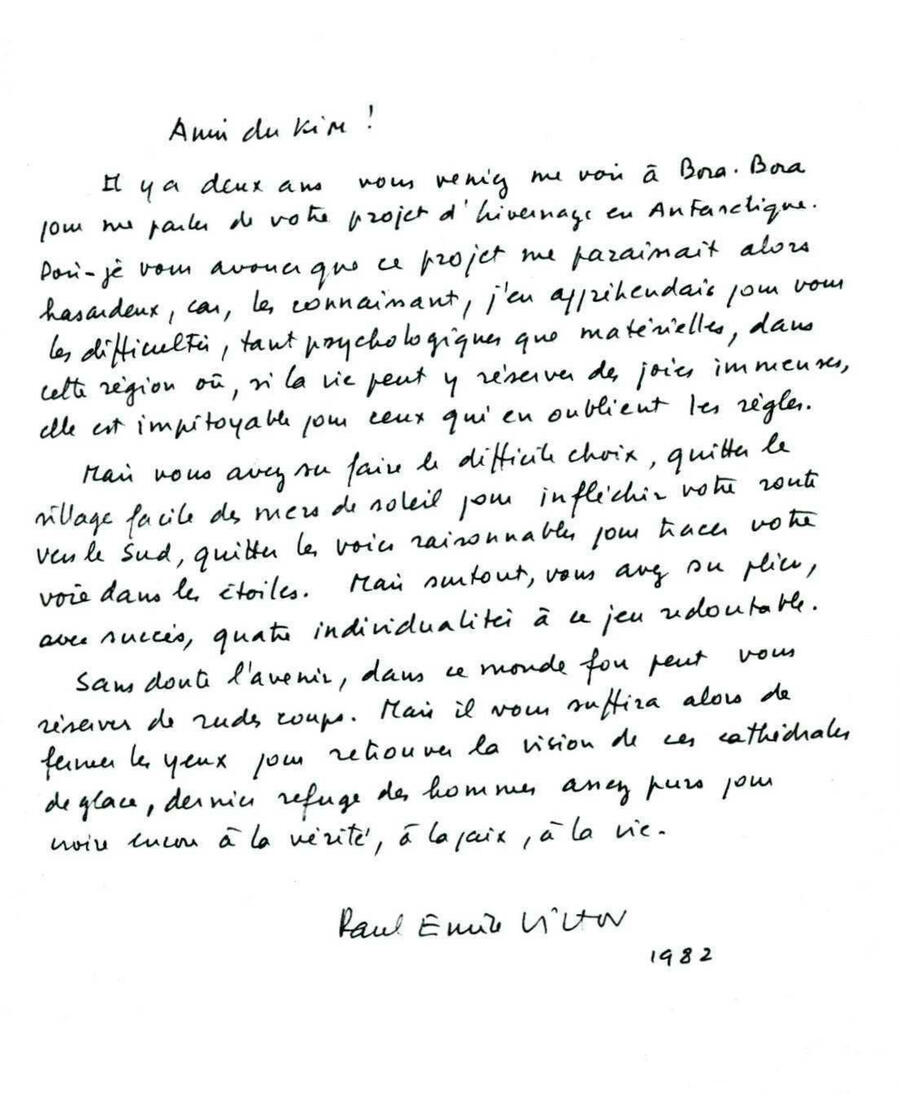 Amis du Kim !
Il y a deux ans vous veniez me voir à Bora.Bora
pour me parler de votre projet d'hivernage en Antarctique.
Dois-je vous avouer que ce projet me paraissait alors
hasardeux, car, les connaissant, j'en appréhendais pour vous
les difficultés, tant psychologiques que matérielles, dans
cette région où, si la vie peut y réserver des joies immenses,
elle est impitoyable pour ceux qui en oublient les règles.
Mais vous avez su faire le difficile choix, quitter le
sillage facile des mers de soleil pour infléchir votre route
vers le Sud, quitter les voies raisonnables pour tracer votre
voie dans les étoiles. Mais surtout, vous avez su plier,
avec succès, quatre individualités à ce jeu redoutable.
Sans doute l'avenir, dans ce monde fou peut vous
réserver de rudes coups. Mais il vous suffira alors de
fermer les yeux pour retrouver la vision de ces cathédrales
de glace, dernier refuge des hommes assez purs pour
croire encore à la vérité, à la paix, à la vie.
Paul Emile Victor
1982